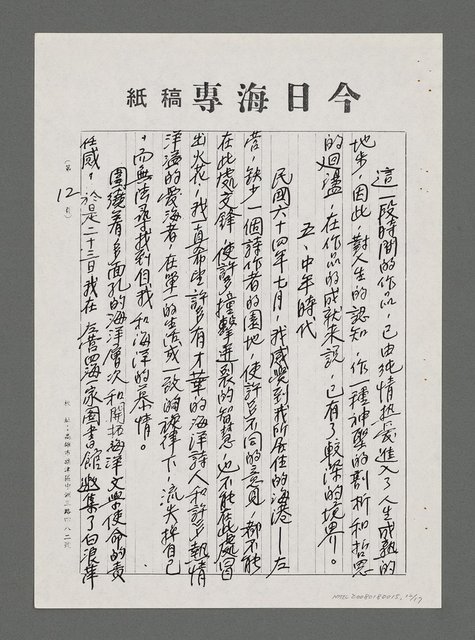 今日海專稿紙
這一段時間的作品，已由純情熱愛進入了人生成熟的
地步，因此，對人生的認知，作一種神聖的剖析和哲思
的迴盪，在作品的成就來說，已有了較深的境界。
五、中年時代
民國六十四年七月，我感覺到我所居住的海港—左
營，缺少一個詩作者的園地，使許多不同的意見，都不能
在此處交鋒，使許多撞擊迸裂的智慧，也不能在此處冒
出火花，我一直希望許多有才華的海洋詩人和許多熱情
洋溢的愛海者，在單一的生活或一致的旋律下，流失掉自己
，而無法尋找到但我和海洋的慕情。
圍繞着多面孔的海洋層次和開拓海洋文學使命的責
任感，於是二十三日我在左營四海一家圖書館邀集了白浪萍
（第12頁）
校址：高雄市旗津區中洲三路四八二號
NMTL20080180015, 12/17